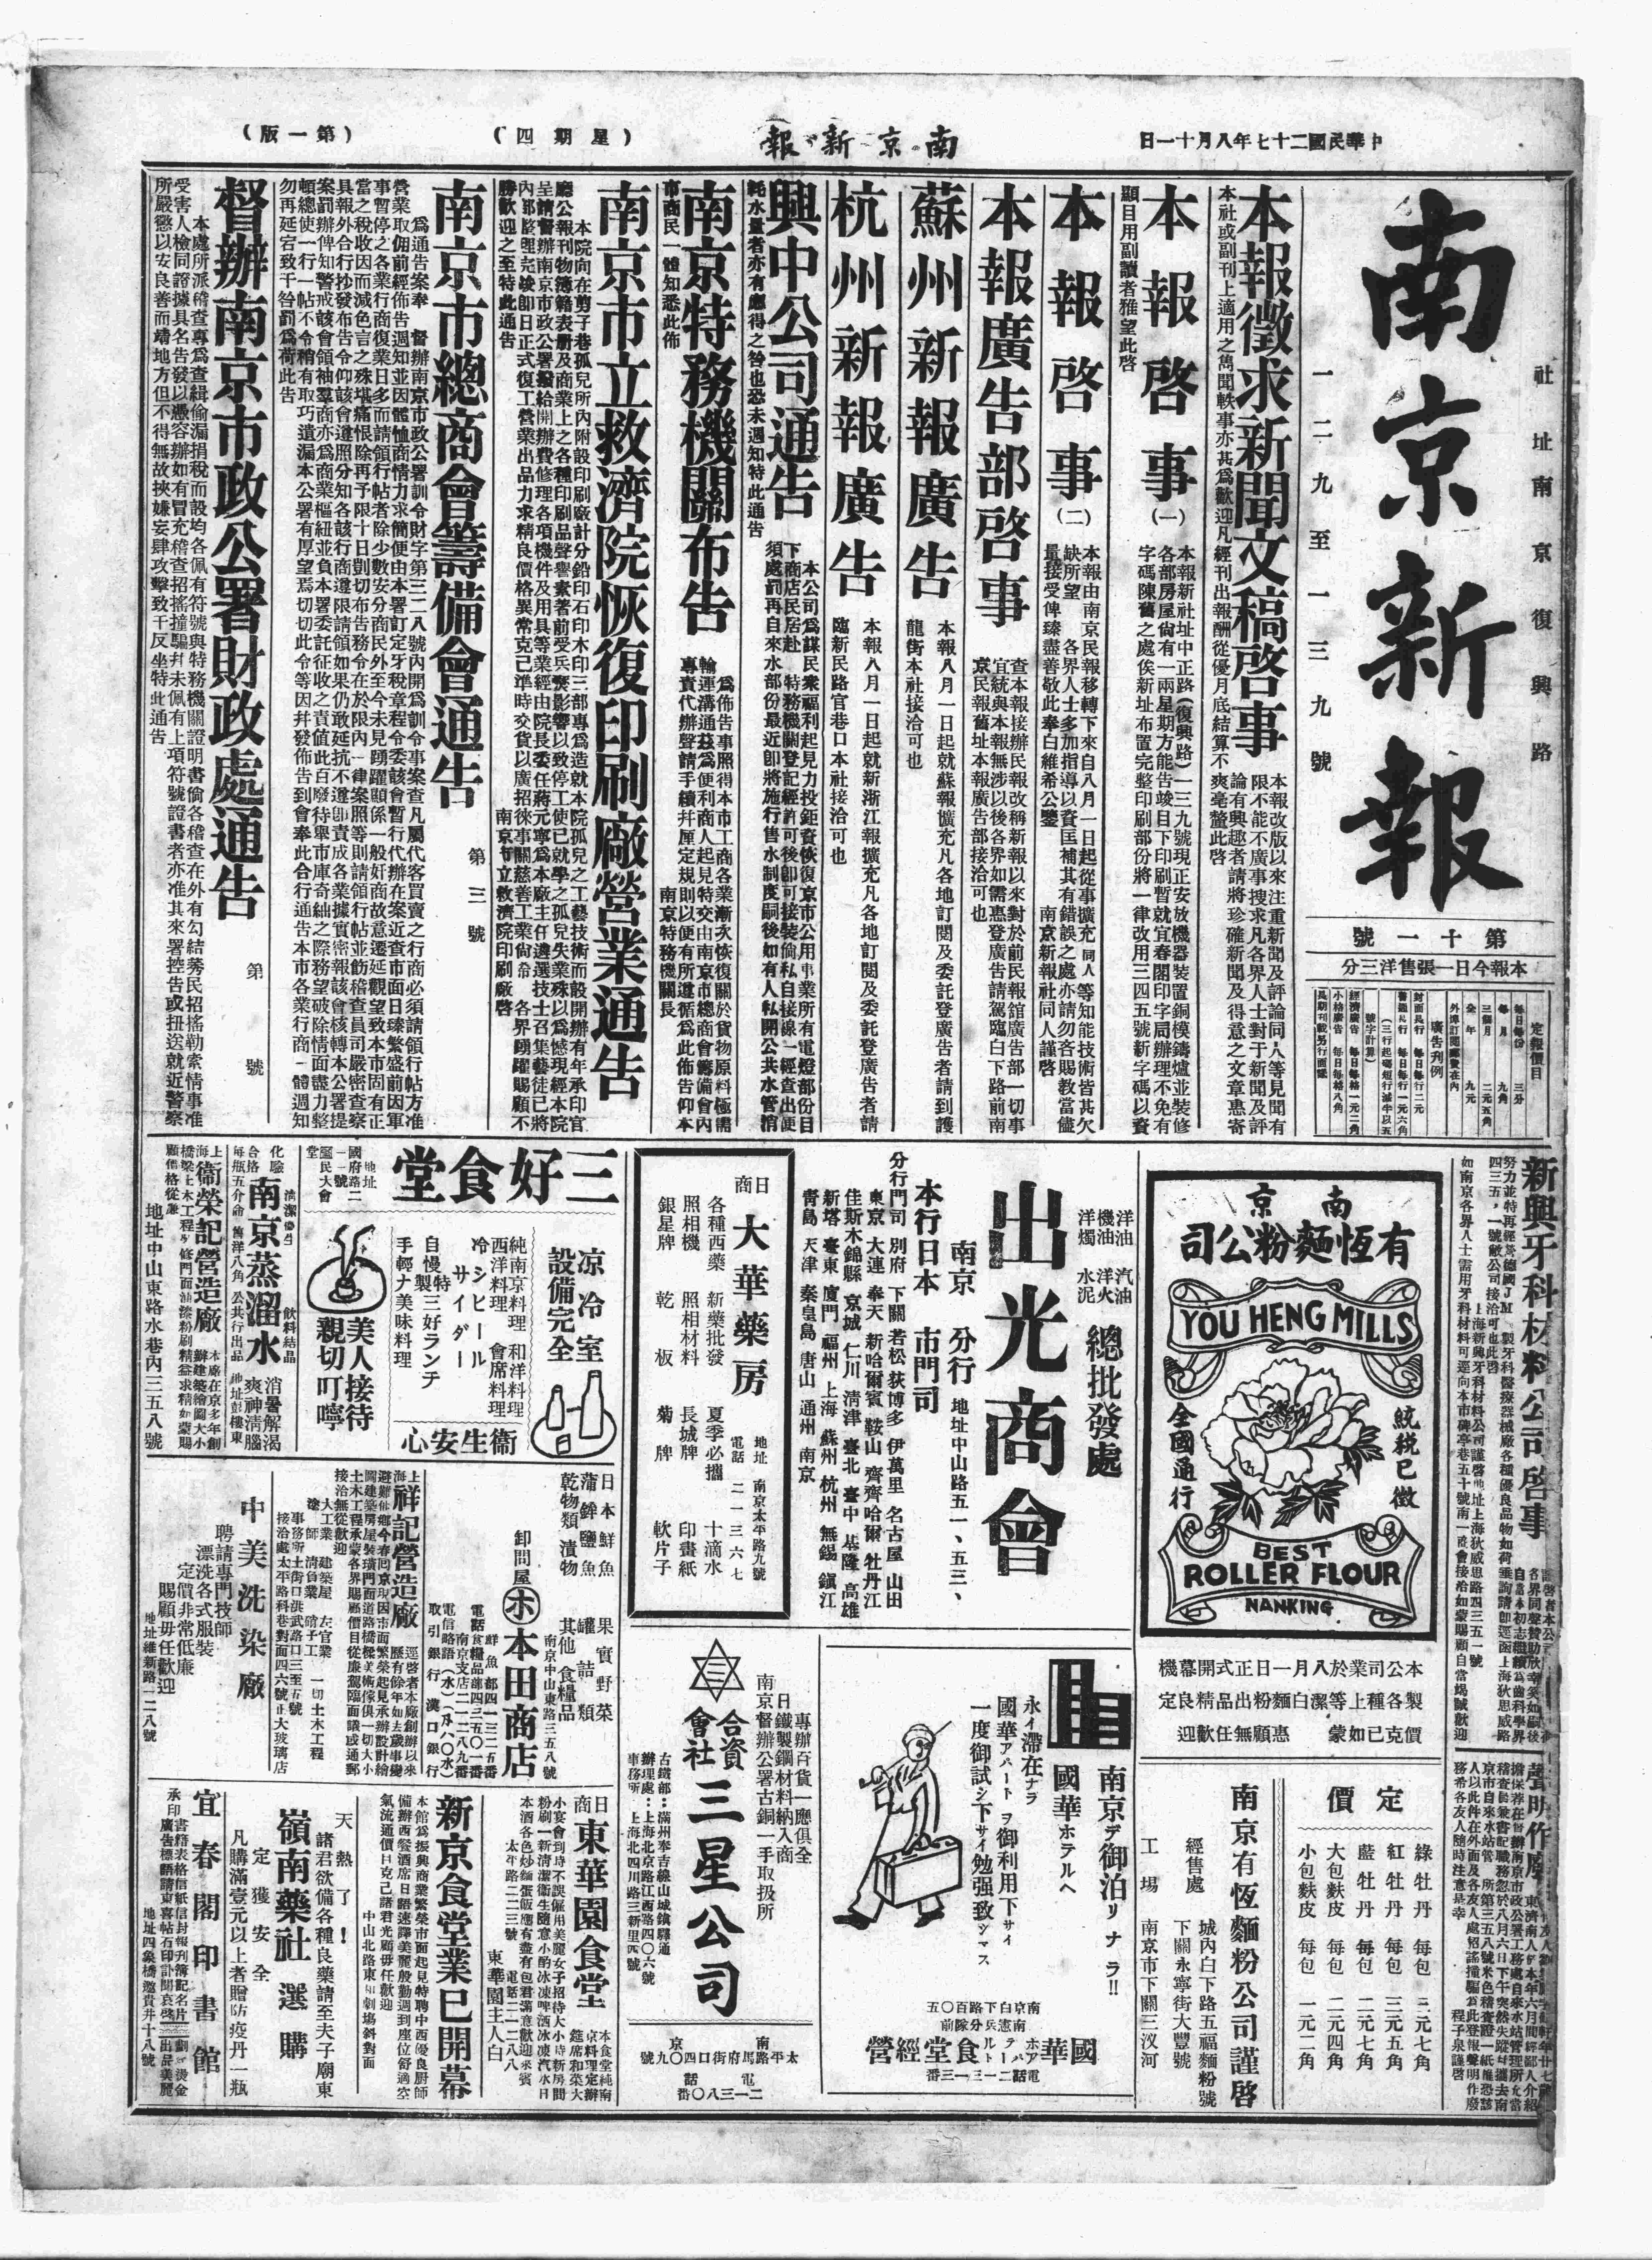 中華民國二十七年八月十一日
南京新報
(星期四)
(第一版)
南京新報
社址南京復興路
一二九至一三九號
第十一號
本報今日一張售洋三分
定報價目
廣告刊例
本報徵求新聞文稿啓事
本報改版以來注重新聞及評論同人等見聞有
限不能不廣事搜求凡各界人士對于新聞及評
論有興趣者請將珍確新聞及得意之文章惠寄
本社或副刊上適用之雋聞軼事亦甚爲歡迎凡經刊出報酬從優月底結算不
爽毫釐此啓
本報啓事(一)
本報新社址中正路(復興路)一三九號現正安放機器裝置銅模鑄爐並裝修
各部房屋尙有一兩星期方能告竣目下印刷暫就宜春閣印字局辦理不免有
字碼陳舊之處俟新址布置完整印刷部份將一律改用三四五號新字碼以資
顯目用副讀者雅望此啓
本報啓事(二)
本報由南京民報移轉下來自八月一日起從事擴充同人等知能技術皆甚欠
缺所望各界人士多加指導以資匡補其有錯誤之處亦請勿吝賜敎當儘
量接受俾臻盡善敬此奉白維希公鑒
南京新報社同人謹啓
本報廣告部啓事
查本報接辦民報改稱新報以來對於前民報館廣告部一切事
宜統與本報無涉以後各界如需惠登廣告請駕臨白下路前南
京民報舊址本報廣告部接洽可也
蘇州新報廣告
本報八月一日起就蘇報擴充凡各地訂閱及委託登廣告者請到護
龍街本社接洽可也
杭州新報廣告
本報八月一日起就新浙江報擴充凡各地訂閱及委託登廣告者請
臨新民路官巷口本社接洽可也
興中公司通告
本公司爲謀民衆福利起見力投鉅資恢復京市公用事業所有電燈部份目
下商店民居赴特務機關登記經許可後卽可接裝倘私自接線一經查出便
須處罰再自來水部份最近卽將施行售水制度嗣後如有人私開公共水管消
耗水量者亦有應得之咎也恐未週知特此通告
南京特務機關布告
爲佈告事照得本市工商各業漸次恢復關於貨物原料極需
輸運溝通茲爲便利商人起見特交由南京市總商會籌備會內
專責代辦聲請手續幷厘定規則以便有所遵循爲此佈告仰本
市商民一體知悉此佈
南京特務機關長
南京市立救濟院恢復印刷廠營業通告
本院向在剪子巷孤兒所內附設印刷廠計分鉛印石印木印三部專爲造就本院孤兒之工藝技術而設開辦有年承印官
廳公報刊物簿籍表册及商業上之各種印刷品聲譽素著前受兵燹影響以致停工使已就學之孤兒失業殊以爲憾現經本院
呈請督辦南京市政公署撥給開辦費修理各項機件及用具等業經由院長委任蔣元寧爲本廠主任遴選技士召集藝徒已將
內部整理完竣卽日正式復工營業出品力求精良價格異常克己準時交貨以廣招徠事關慈善工業尙希各界踴躍賜顧不
勝歡迎之至特此通告
南京市立救濟院印刷廠啓
南京市總商會籌備會通告
第三號
爲通告案奉督辦南京市政公署訓令財字第三二八號內開爲訓令事案查凡屬代客買賣之行商必須請領行帖方准
營業取佣前經佈告週知並因體恤商情力求簡便由本署訂定牙稅章程令委該會暫行代辦在案近查市面日臻繁盛前因軍
事暫停之各業行商復業日多而請領行帖者除少數安分商民外至今未見踴躍顯係一般奸商故意遷延觀望致本市固有正
當之稅收因而減色言之殊堪痛恨除再予限十日剴切布告務令在於限內一律完案照等則請領行帖並飭稽查員司嚴密查察
具報外合行抄發布告令仰該會遵照分知各該行商遵限請領如果仍敢延抗不遵卽責成各業據實密報該會核轉本公署提
案罰辦俾知警戒該會領袖羣商亦爲商業樞紐並負本署委託征收之責值此百廢待舉市庫奇絀之際務望破除情面盡力整
頓總使一行一帖不令稍有取巧遺漏本公署有厚望焉切切此令等因幷發佈告到會奉此合行通告本市各業行商一體週知
勿再延宕致干咎罰爲荷此告
督辦南京市政公署財政處通告
第 號
本處所派稽查專爲查緝偷漏捐稅而設均各佩有符號與特務機關證明書倘各稽查在外有勾結莠民招搖勒索情事准
受害人檢同證據具名告發以憑容辦如有冒充稽查招搖撞騙幷未佩有上項符號證書者亦准其來署控告或扭送就近警察
所嚴懲以安良善而靖地方但不得無故挾嫌妄肆攻擊致干反坐特此通告
新興牙科材料公司啓事
南京
有恆麵粉公司
YOU HENG MILLS
統稅已徵
全國通行
BEST
ROLLER FLOUR
NANKING
本公司業於八月一日正式開幕機
製各種上等潔白麵粉出品精良定
價克已如蒙惠顧無任歡迎
定價
綠牡丹 每包 三元七角
紅牡丹 每包 三元五角
藍牡丹 每包 二元七角
大包麩皮 每包 二元四角
小包麩皮 每包 一元二角
南京有恆麵粉公司謹啓
經售處
城內白下路五福麵粉號
下關永寧街大豐號
工場 南京市下關三汊河
聲明作廢
出光商會
洋油 機油 洋燭
汽油 洋火 水泥
總批發處
南京分行 地址中山路五一、五三、
本行日本市門司
分行門司 別府 下關 若松 荻博多 伊萬里 名古屋 山田
東京 大連 奉天 新哈爾賓 鞍山 齊齊哈爾 牡丹江
佳斯木 錦縣 京城 仁川 淸津 臺北 臺中 基隆 高雄
新塔 臺東 廈門 福州 上海 蘇州 杭州 無錫 鎭江
靑島 天津 秦皇島 唐山 通州 南京
日商
大華藥房
地址 南京太平路九號
電話 二一三六七
各種西藥 新藥批發 夏季必攜 十滴水
照相機 照相材料 長城牌 印畫紙
銀星牌 乾板 菊牌 軟片子
南京デ御泊リナラ!!
國華ホテルへ
永イ滯在ナラ
國華アパートヲ御利用下サイ
一度御試シ下サイ勉强致シマス
南京白下路百〇五
南憲兵分隊前
國華ホテル アパート 食堂經營
電話二一三一三番
專辦百貨一應俱全
日鐵製鋼材料納入商
南京督辦公署古銅一手取扱所
合資會社
三星公司
古鐵部:滿州奉吉線山城鎭驛通
辦理處:上海北京路江西路四〇六號
車務所 上海北四川路三新里四號
南京
太平路馬府街口四〇九號
電話
二一三八〇番
三好食堂
地址
國府路二一一號
國民大會堂
凉冷室
設備完全
純南京料理 和洋料理
西洋料理 會席料理
冷シビール
サイダー
自慢特製三好ランチ
手輕ナ美味料理
美人接待
親切叮嚀
衞生安心
南京蒸溜水
淸潔衞生
飲料結晶
消暑解渴
爽神淸腦
化驗合格
每瓶五介侖 售洋八角 公共行出品 地址鼓樓東
上海衞榮記營造廠
地址中山東路水巷內三五八號
日本鮮魚 果實野菜
蒲鉾鹽魚 罐詰類
乾物類漬物 其他食糧品
卸問屋
ホ
本田商店
南京中山東路三五八號
鮮魚部四一三二五番
電話食糧品部四三五〇一番
南京支店二一二八九番
取引銀行 漢口銀行
上海祥記營造廠
中美洗染廠
聘請專門技師
漂洗各式服裝
定價非常低廉
賜顧毋任歡迎
地址維新路一二八號
日商
東華園食堂
太平路二二三號
電話二一二八八
東華園主人白
新京食堂業已開幕
本館爲振興商業繁榮市面起見特聘中西優良廚師
備辦西餐酒席日語速譯美麗殷勤週到座位舒適空
氣流通價目克己諸君光顧毋任歡迎
中山北路東和劇場斜對面
天熱了!
諸君欲備各種良藥請至夫子廟東
嶺南藥社選購
定獲安全
凡購滿壹元以上者贈防疫丹一瓶
宜春閣印書館
地址四象橋邀貴井十八號